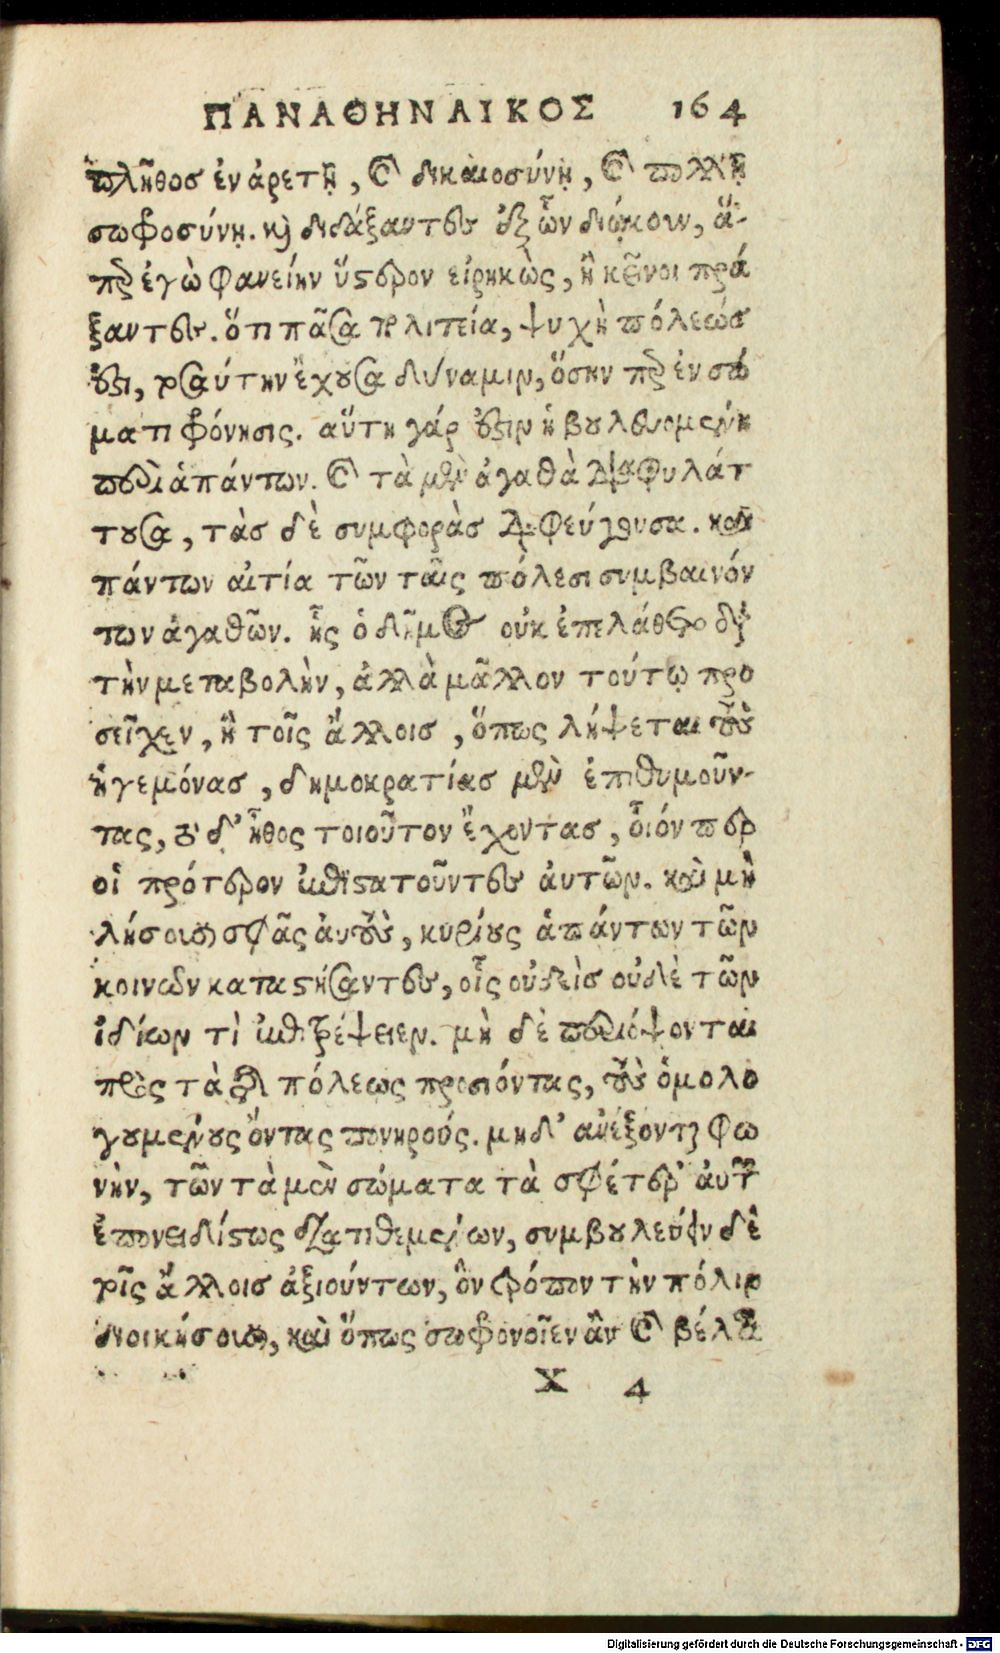 ΠΑΝΑΘΗΝΑΙΚΟΣ 164
πλῆθος ἐν ἀρετῇ, καὶ δικαιοσύνῃ, καὶ πολλῇ
σωφροσύνῃ. καὶ διδάξαντες ἐξ ὧν διῴκουν, ἅ-
περ ἐγὼ φανείην ὕστερον εἰρηκὼς, ἢ κεῖνοι πρά
ξαντες. ὅτι πᾶσα πολιτεία, ψυχὴ πόλεώς
ἐστι, τοσαύτην ἔχουσα δύναμιν, ὅσην περ ἐν σώ
ματι φρόνησις. αὕτη γάρ ἐστιν ἡ βουλευομένη
περὶ ἁπάντων. καὶ τὰ μὲν ἀγαθὰ διαφυλάτ
τουσα, τὰς δὲ συμφορὰς διαφεύγουσα. καὶ
πάντων αἰτία τῶν ταῖς πόλεσι συμβαινόν
των ἀγαθῶν. ἧς ὁ δῆμος οὐκ ἐπελάθετο διὰ
τὴν μεταβολὴν, ἀλλὰ μᾶλλον τούτῳ προ
σεῖχεν, ἢ τοῖς ἄλλοις, ὅπως λήψεται τοὺς
ἡγεμόνας, δημοκρατίας μὲν ἐπιθυμοῦν-
τας, τὸ δ' ἦθος τοιοῦτον ἔχοντας, οἷόν περ
οἱ πρότερον ἐπιστατοῦντες αὐτῶν. καὶ μὴ
λήσουσι σφᾶς αὐτοὺς, κυρίους ἁπάντων τῶν
κοινῶν καταστήσαντες, οἷς οὐδεὶς οὐδὲ τῶν
ἰδίων τὶ ἐπιτρέψειεν. μὴ δὲ περιόψονται
πρὸς τὰ τῆς πόλεως προσιόντας, τοὺς ὁμολο
γουμένους ὄντας πονηρούς. μηδ' ἀνέξονται φω
νὴν, τῶν τὰ μὲν σώματα τὰ σφέτερ' αὐτῶν
ἐπονειδίστως διατιθεμένων, συμβουλεύειν δὲ
τοῖς ἄλλοις ἀξιούντων, ὃν τρόπον τὴν πόλιν
διοικήσουσι, καὶ ὅπως σωφρονοῖεν ἂν καὶ βέλτι
X 4
Digitalisierung gefördert durch die Deutsche Forschungsgemeinschaft - DFG